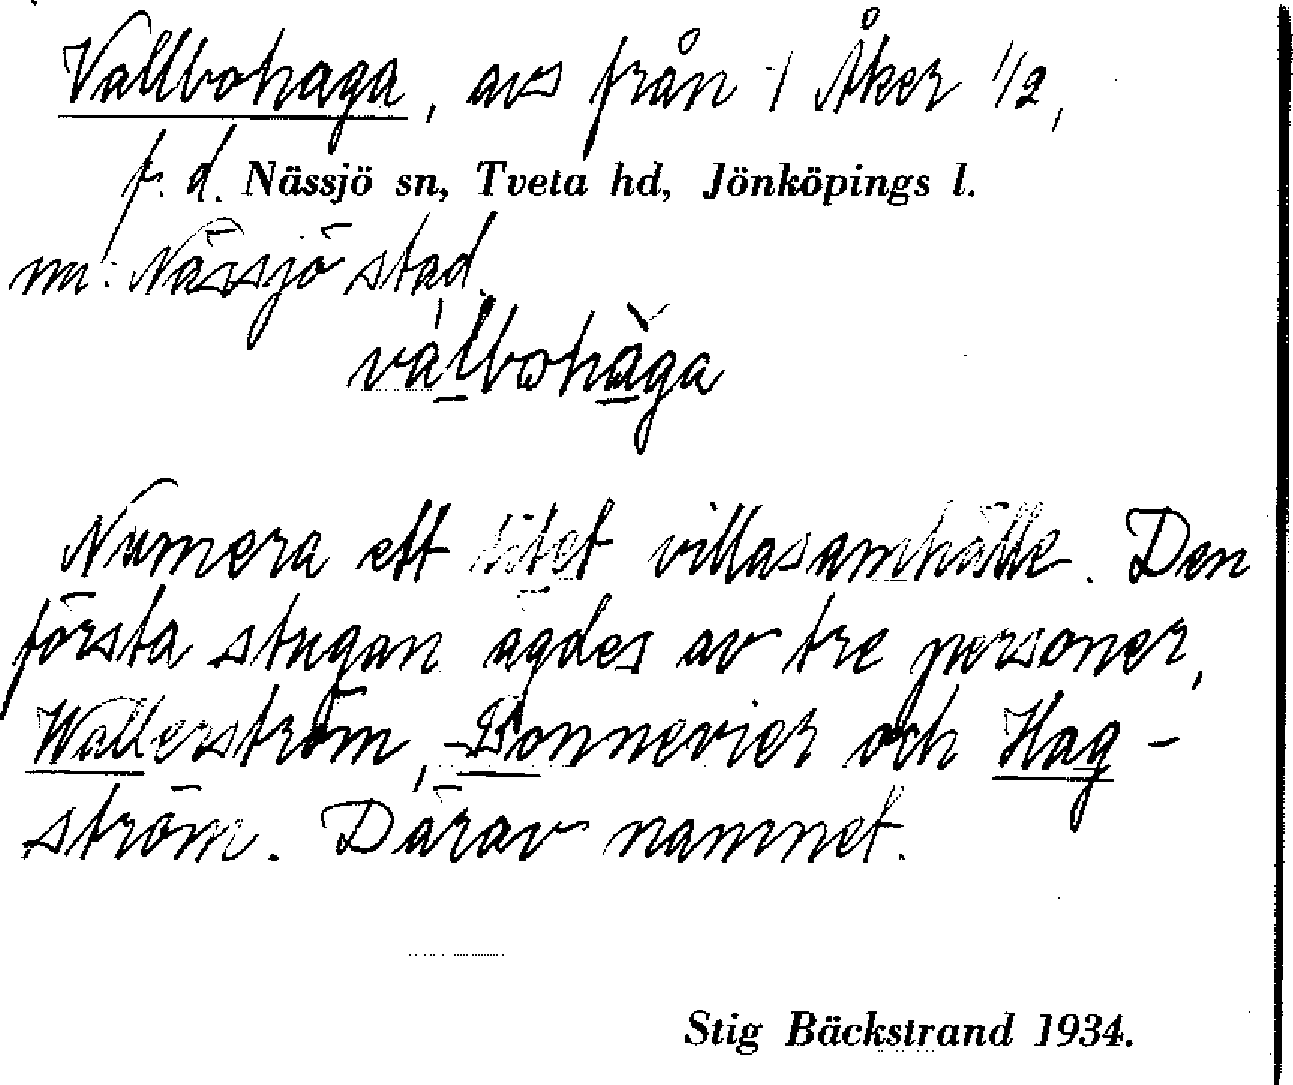 Vallbohaga, avs från 1 Åker 1/2,
f. d. Nässjö sn, Tveta hd, Jönköpings l.
nu: Nässjö stad.
valbohaga
Numera ett litet villasamhälle. Den
första stugan ägdes av tre personer,
Wallerström, Bonnevier och Hag-
ström. Därav namnet.
Stig Bäckstrand 1934.